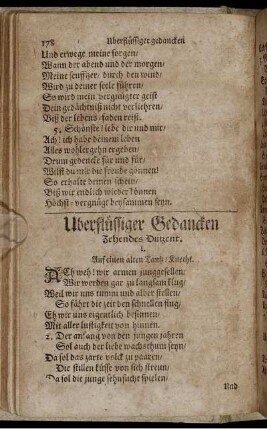 178 Uberflüssiger gedancken
Und erwege meine sorgen/
Wann der abend und der morgen/
Meine seuffzer/ durch den wind/
Wird zu deiner seele führen/
So wird mein vergnügter geist
Dein gedächtniß nicht verliehren/
Biß der lebens-faden reist.
5. Schönste! liebe dir und mir/
Ach! ich habe deinem leben
Alles wohlergehn ergeben/
Drum gedencke für und für/
Wilst du mir die freude gönnen/
So erhalte deinen schein/
Biß wir endlich wieder können
Höchst-vergnügt beysammen seyn.
Uberflüssiger Gedancken
Zehendes Dutzent.
1.
Auf einen alten Tantz-Knecht.
ACh weh! wir armen junggesellen/
Wir werden gar zu langsam klug/
Weil wir uns tumm und alber stellen/
So führt die zeit den schnellen flug/
Eh wir uns eigentlich besinnen/
Mit aller lustigkeit von hinnen.
2. Der anfang von den jungen jahren
Sol auch der liebe wachsthum seyn/
Da sol das zarte volck zu paaren/
Die stillen küsse von sich streun/
Da sol die junge sehnsucht spielen/
Und